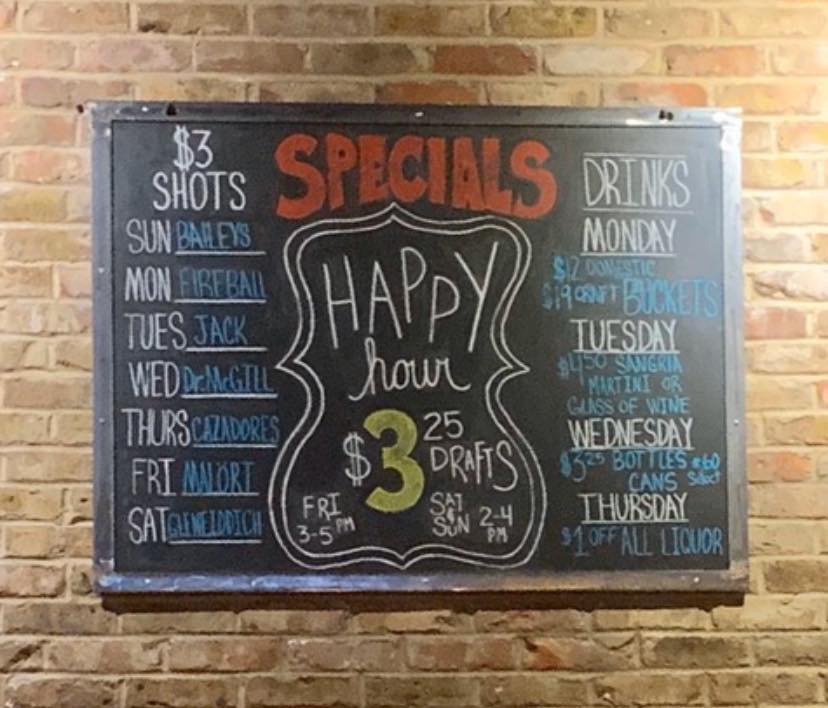 SPECIALS
$3
SHOTS
SUN BAILEYS
MON FIREBALL
TUES JACK
WED Dr. McGILL
THURS CAZADORES
FRI MALÖRT
SAT GLENFIDDICH
HAPPY
hour
$3 25
DRAFTS
FRI
3-5 PM
SAT
&
SUN
2-4
PM
DRINKS
MONDAY
$12 DOMESTIC
$19 CRAFT BUCKETS
TUESDAY
$4.50 SANGRIA
MARTINI OR
GLASS OF WINE
WEDNESDAY
$3 25 BOTTLES
CANS Select
THURSDAY
$1 OFF ALL LIQUOR